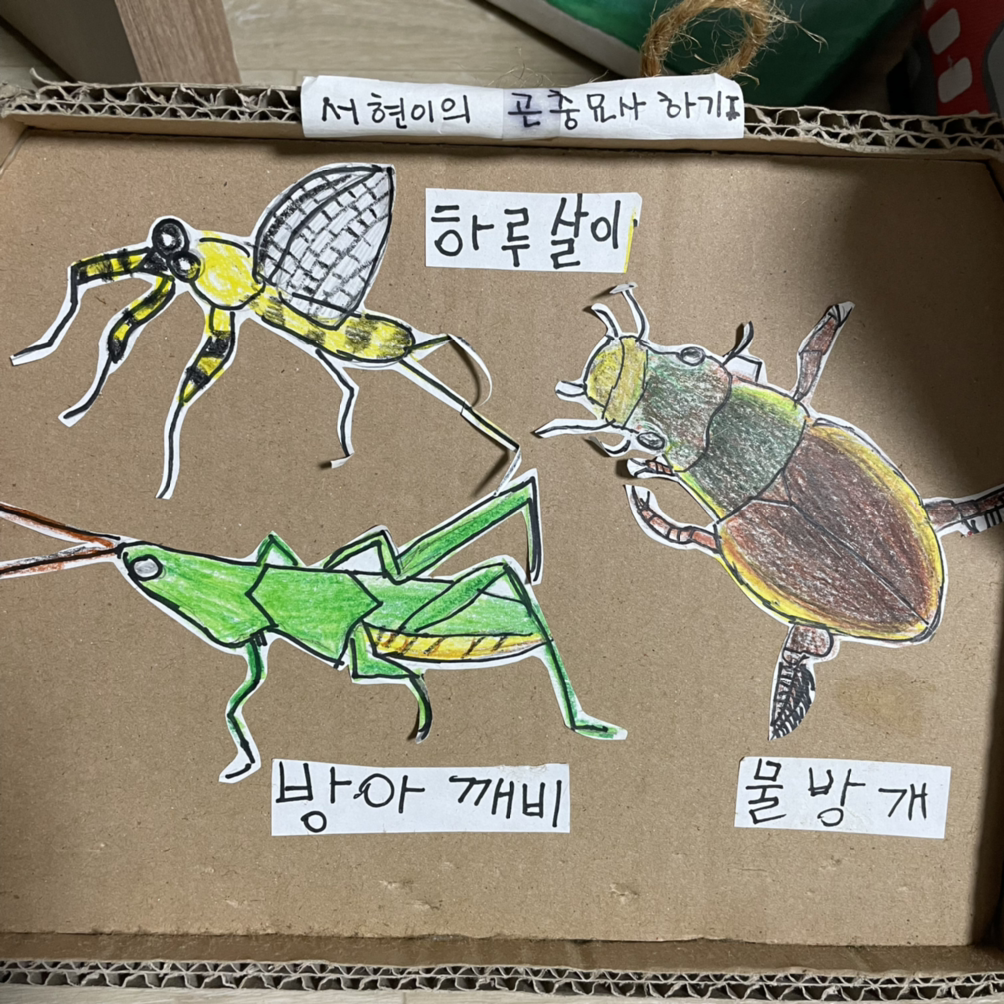 서현이의 곤충묘사 하기!
하루살이
방아깨비
물방개